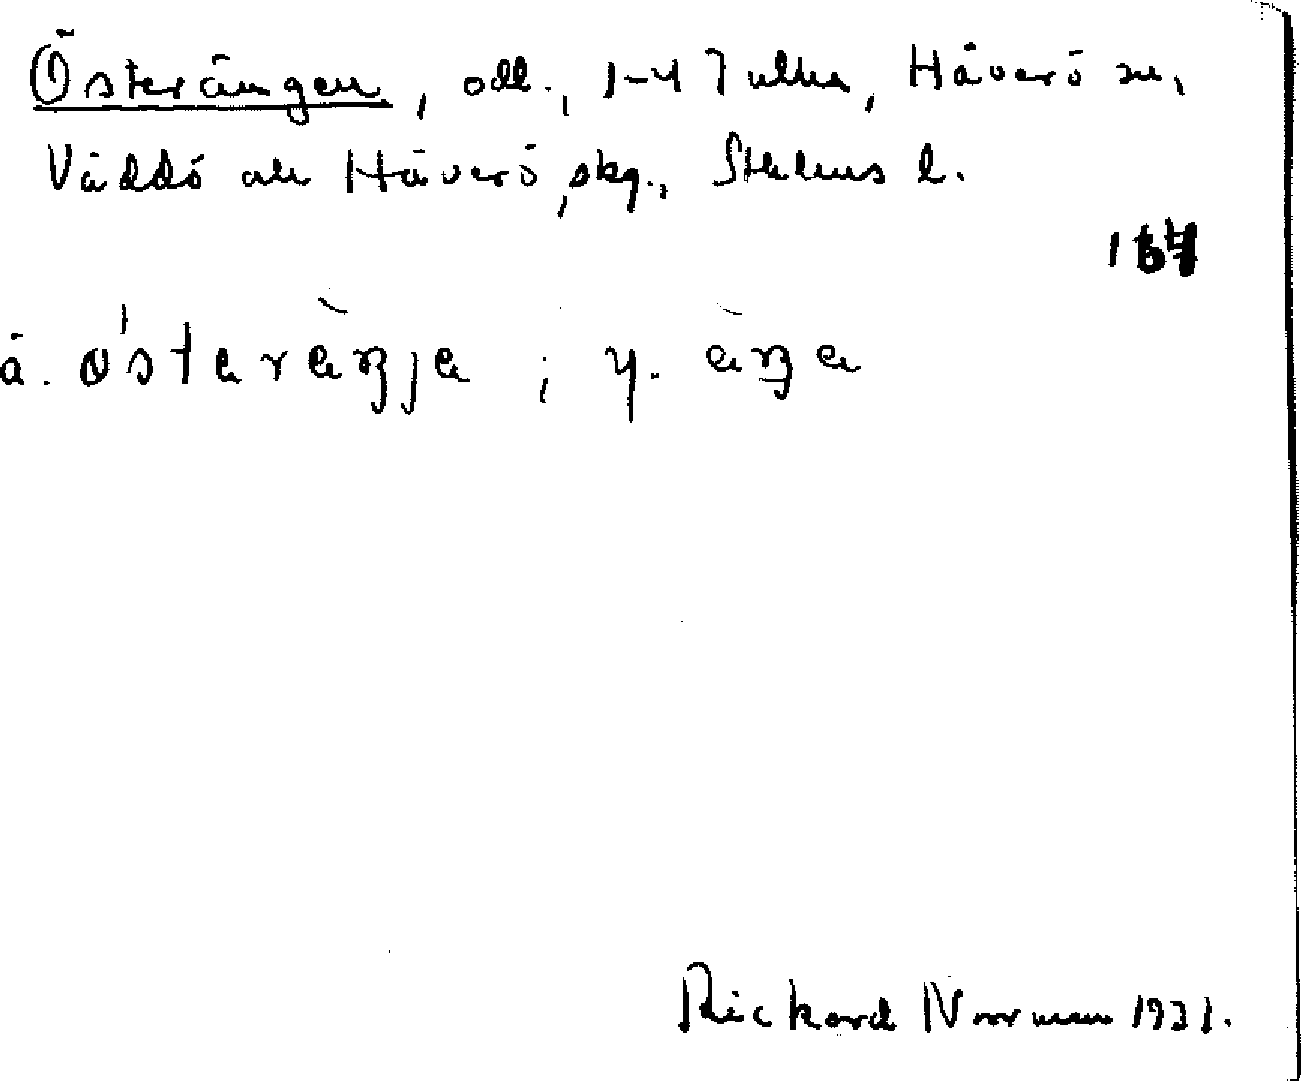 Österängen, odl., 1-4 Tulka, Häverö sn,
Väddö och Häverö skg., Sthlms l.
167
ä. ö́sterèŋja ; y. èŋa
Rickard Norrman 1931.